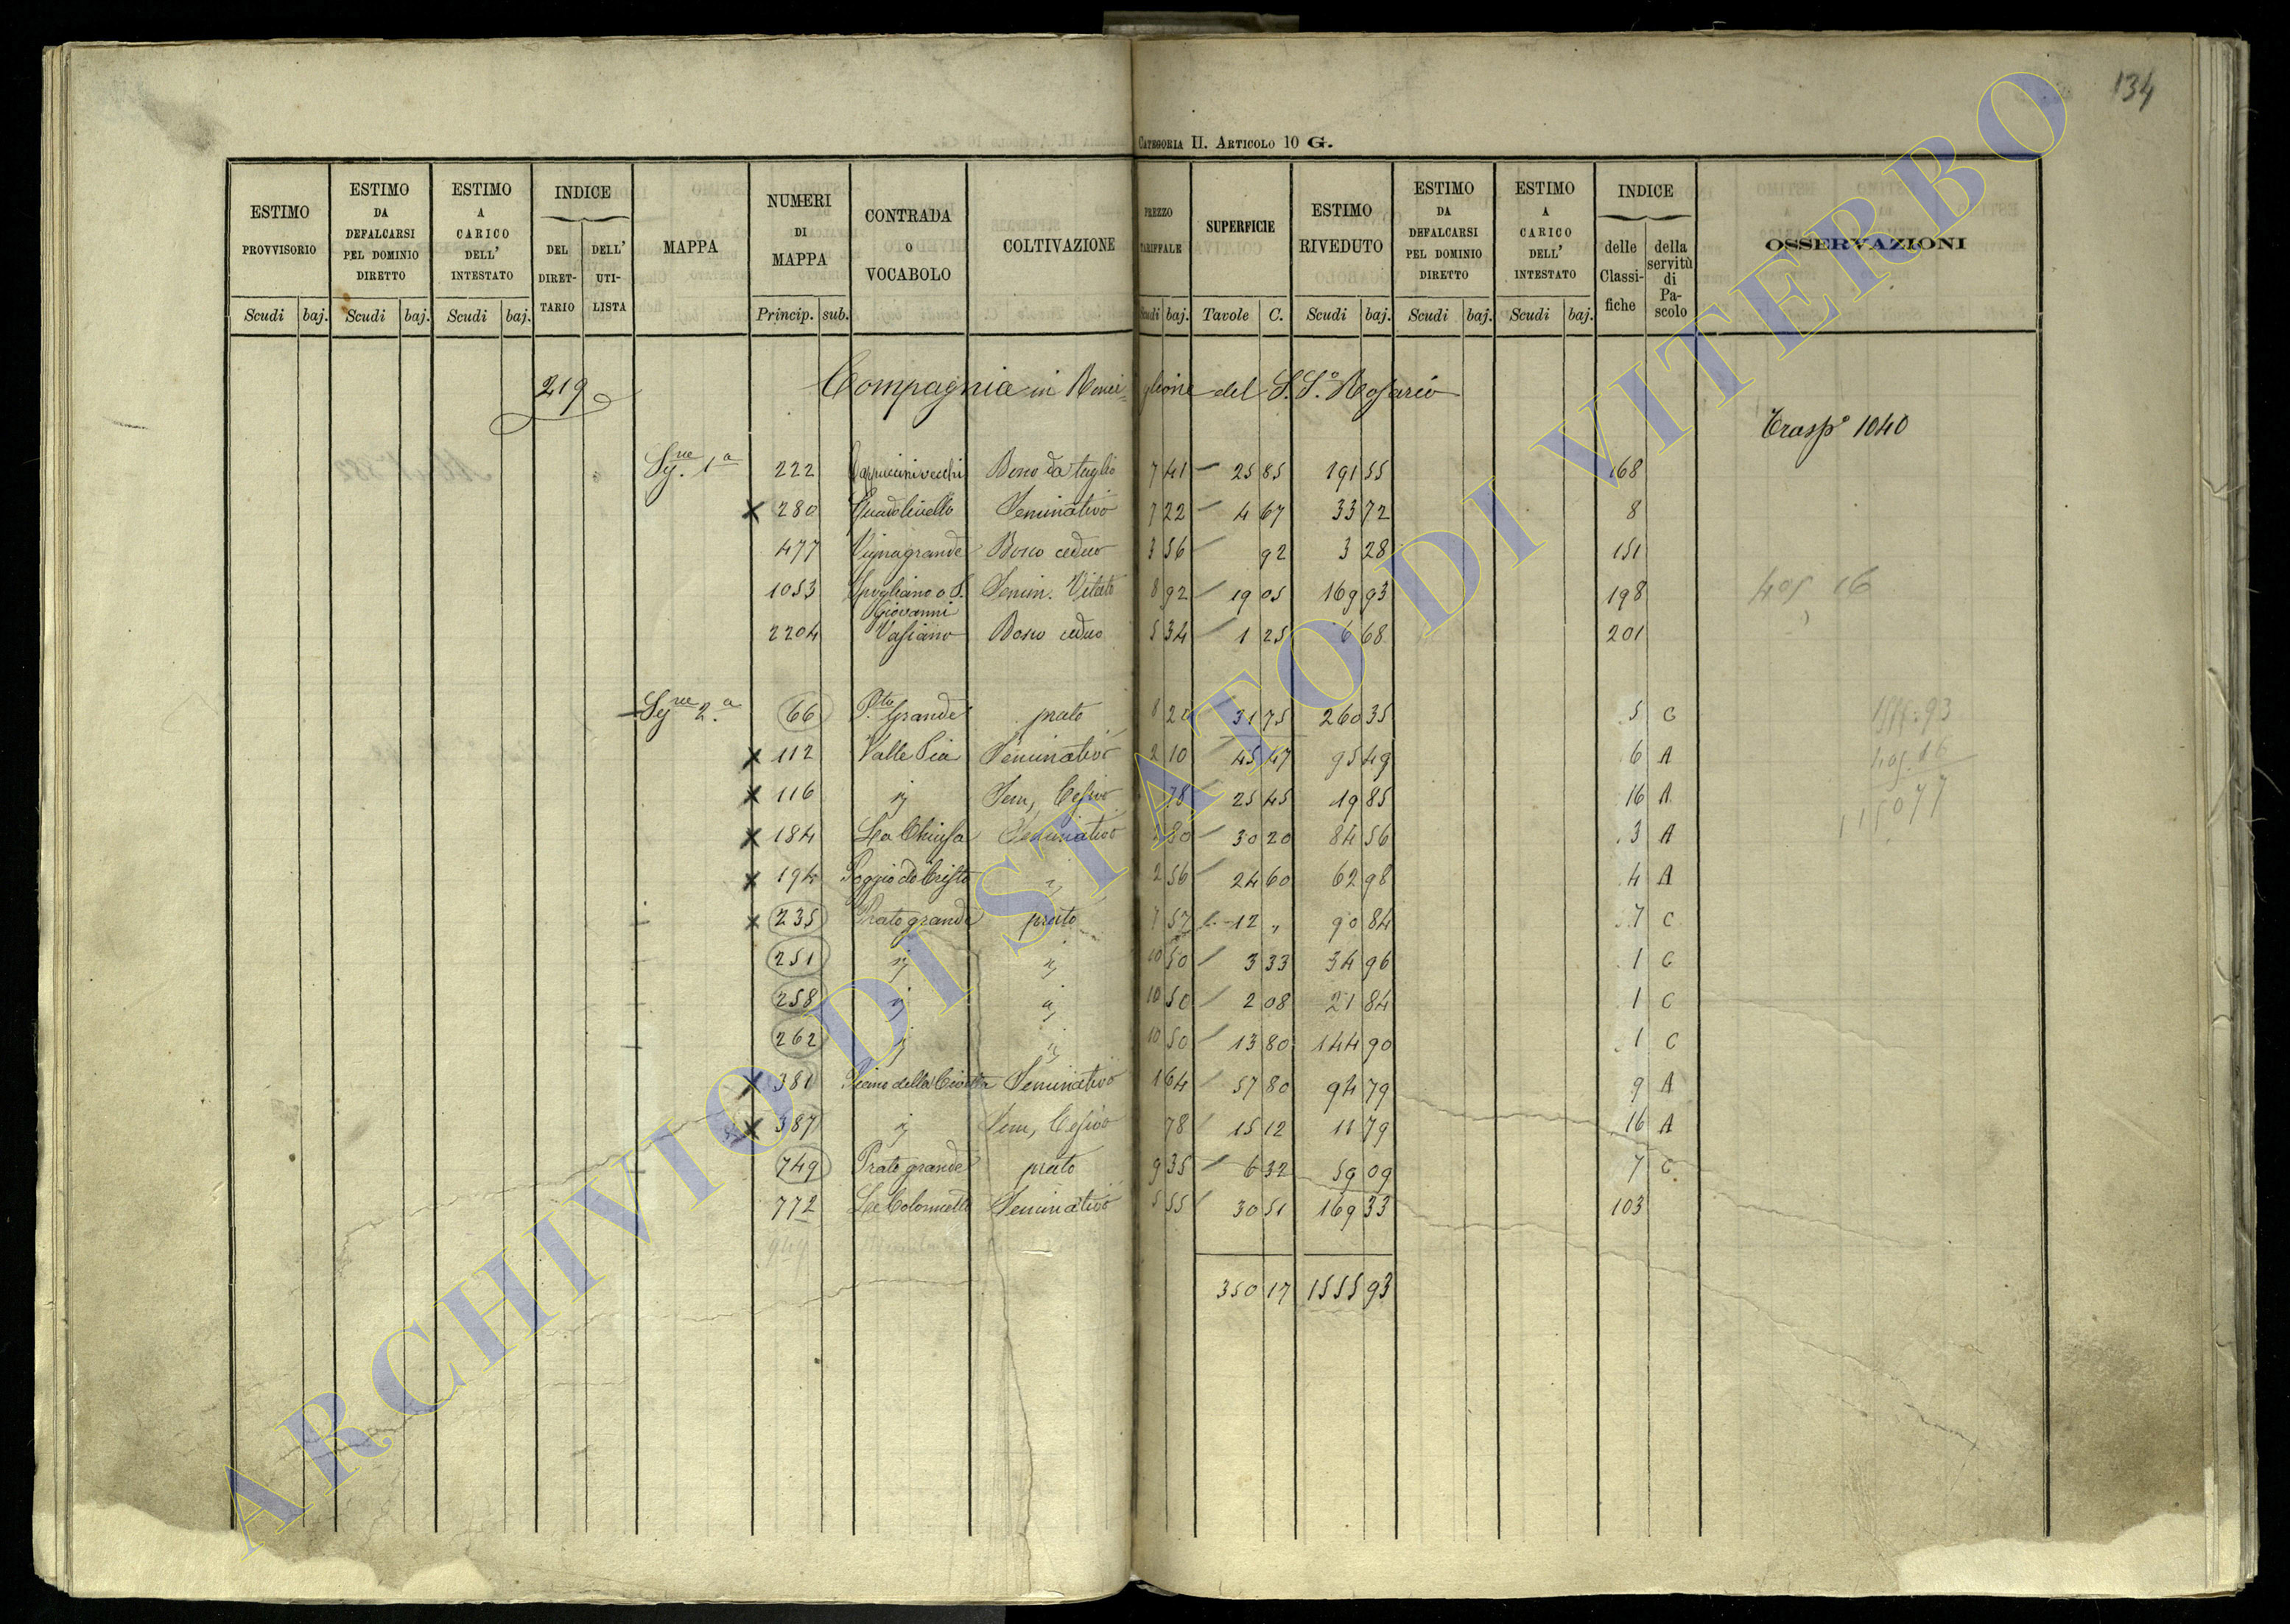 134
CATEGORIA II. ARTICOLO 10 G.
ESTIMO PROVVISORIO | ESTIMO DA DEFALCARSI PEL DOMINIO DIRETTO | ESTIMO A CARICO DELL' INTESTATO | INDICE | MAPPA | NUMERI DI MAPPA | CONTRADA O VOCABOLO | COLTIVAZIONE | PREZZO TARIFFALE | SUPERFICIE | ESTIMO RIVEDUTO | ESTIMO DA DEFALCARSI PEL DOMINIO DIRETTO | ESTIMO A CARICO DELL' INTESTATO | INDICE | OSSERVAZIONI
DEL DIRET-TARIO | DELL' UTI-LISTA | delle Classi-fiche | della servitù di Pa-scolo
Scudi baj. | Scudi baj. | Scudi baj. | Princip. sub. | Scudi baj. | Tavole C. | Scudi baj. | Scudi baj. | Scudi baj.
219 Compagnia in Ronciglione del S.S.º Rosario
Trasp.º 1040
Sez.ne 1.a 222 Cappuccini vecchi Bosco da taglio 7 41 25 85 191 55 168
x 280 Seminativo 7 22 4 67 33 72 8
477 Vignagrande Bosco ceduo 3 56 92 3 28 151
1053 o S. Giovanni Semin. Vitato 8 92 19 05 169 93 198
405 16
2204 Vasiano Bosco ceduo 5 34 1 25 6 68 201
Sez.ne 2.a 66 P.to Grande prato 8 20 31 75 260 35 5 C
93
x 112 Valle Pia Seminativo 2 10 45 47 95 49 6 A
405.16
x 116 Sem, Cesivo 78 25 45 19 85 16 A
x 184 La Chiusa Seminativo 2 80 30 20 84 56 3 A
x 194 Poggio di Cristo 2 56 24 60 62 98 4 A
x 235 Prato grande prato 7 57 12 " 90 84 7 C
251 10 50 3 33 34 96 1 C
258 10 50 2 08 21 84 1 C
262 10 50 13 80 144 90 1 C
x 381 Piano della Seminativo 1 64 57 80 94 79 9 A
x 387 Sem, Cesivo 78 15 12 11 79 16 A
749 Prato grande prato 9 35 6 32 59 09 7 C
772 Le Colonnette Seminativo 5 55 30 51 169 33 103
350 17 1555 93
ARCHIVIO DI STATO DI VITERBO